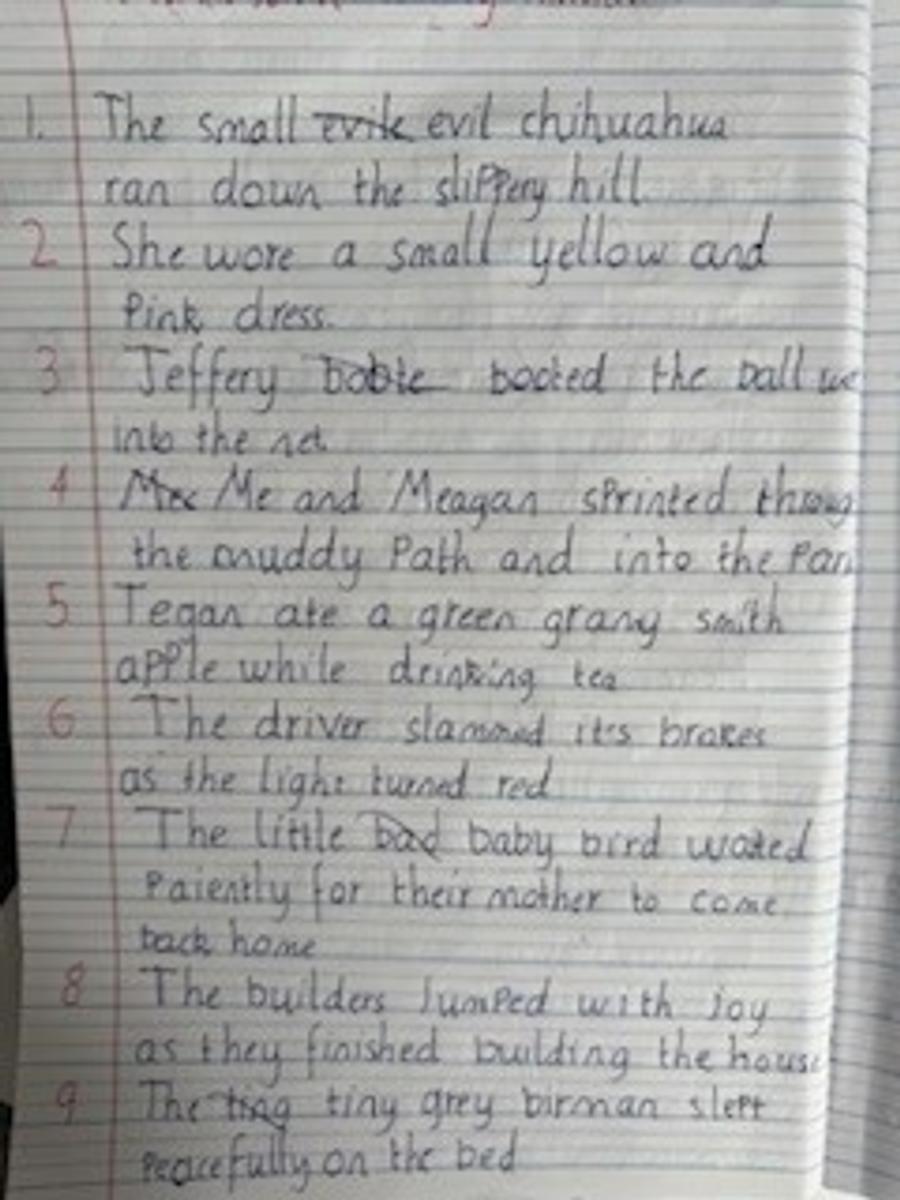 1. The small evile evil chihuahua
ran down the slippery hill
2 She wore a small yellow and
Pink dress.
3 Jeffery boble booted the ball we
into the net
4 Mee Me and Meagan sprinted throug
the muddy Path and into the Par
5 Tegan ate a green grany smith
apple while drinking tea
6 The driver slammed it's brakes
as the light turned red
7 The little bad baby bird waited
Paiently for their mother to come
back home
8 The builders Jumped with joy
as they finished building the house
9 The ting tiny grey birman slept
Peacefully on the bed